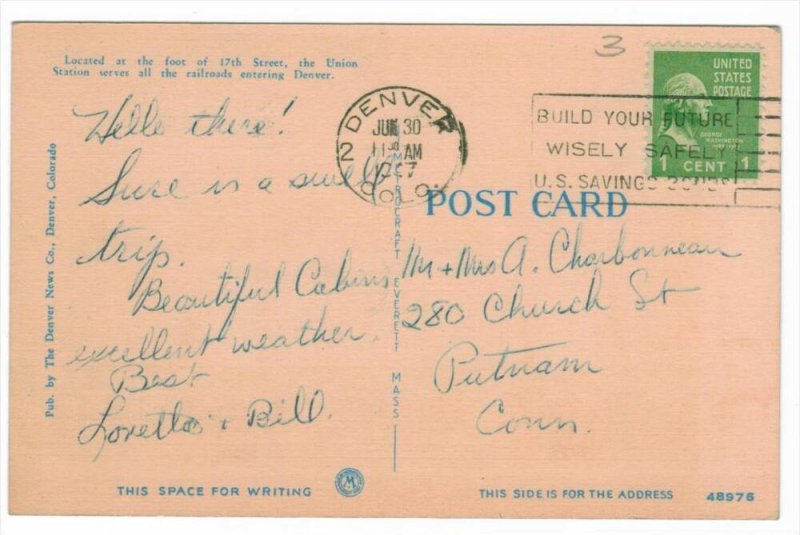 Located at the foot of 17th Street, the Union
Station serves all the railroads entering Denver.
Hello there!
Sure is a swell
trip.
Beautiful Cabins
excellent weather.
Best
Loretta + Bill.
Pub. by The Denver News Co., Denver, Colorado
THIS SPACE FOR WRITING
M
METROCRAFT EVERETT MASS
3
DENVER
2
JUN 30
11 30 AM
COLO.
BUILD YOUR FUTURE
WISELY SAFELY
U.S. SAVINGS BONDS
UNITED
STATES
POSTAGE
GEORGE
WASHINGTON
1 CENT 1
POST CARD
Mr + Mrs A. Charbonneau
280 Church St
Putnam
Conn.
THIS SIDE IS FOR THE ADDRESS
48976